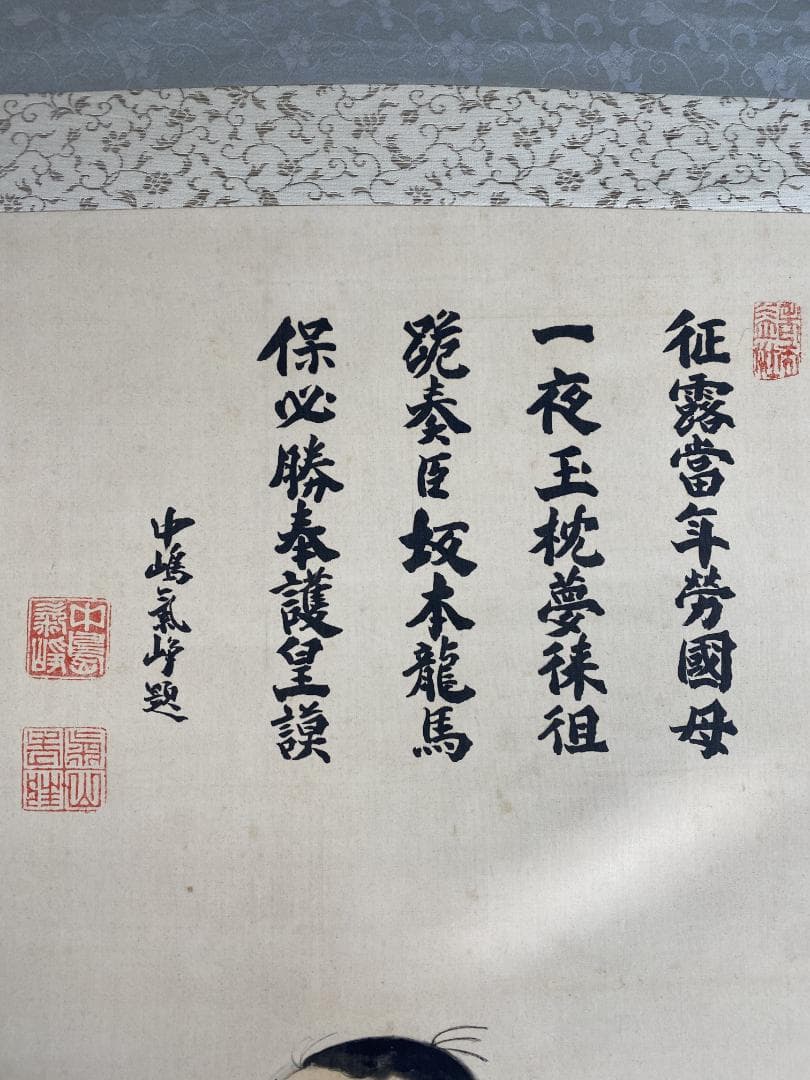 征露當年勞國母
一夜玉枕夢徠徂
跪奏臣坂本龍馬
保必勝奉護皇謨
中嶋氣崢題
中島
氣崢